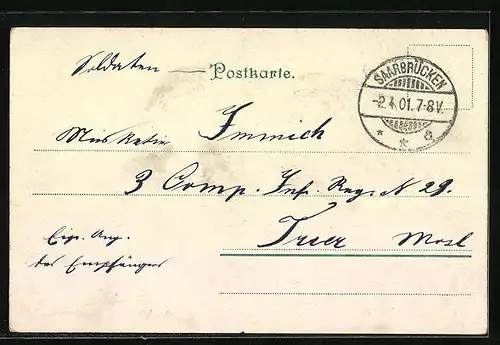 Soldaten — Postkarte.
SAARBRÜCKEN
-2.4.01.7-8V.
* * a
Musketier Immich
3 Comp. Inf. Reg. N 29.
Trier Mosl
Eig. Ang.
des Empfängers